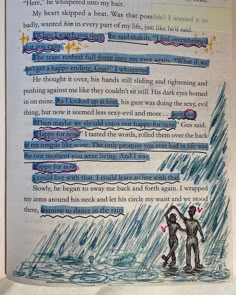 "Here," he whispered into my hair.
My heart skipped a beat. Was that possible? I wanted it so
badly, wanted him in every part of my life, just like he'd said.
he said
The stars rushed full force into my eyes again. "What if we
don't get a happy ending, Gus?" I whispered.
He thought it over, his hands still sliding and tightening and
pushing against me like they couldn't sit still. His dark eyes homed
in on mine. As I looked up at him, his gaze was doing the sexy, evil
thing, but now it seemed less sexy-evil and more
Then maybe we should enjoy our happy for now." Gus said.
"Happy for now." I tasted the words, rolled them over the back
of my tongue like wine. The only promise you ever had in life was
the one moment you were living. And I was.
Happy for now.
I could live with that. I could learn to live with that.
Slowly, he began to sway me back and forth again. I wrapped
my arms around his neck and let his circle my waist and we stood
there, learning to dance in the rain.